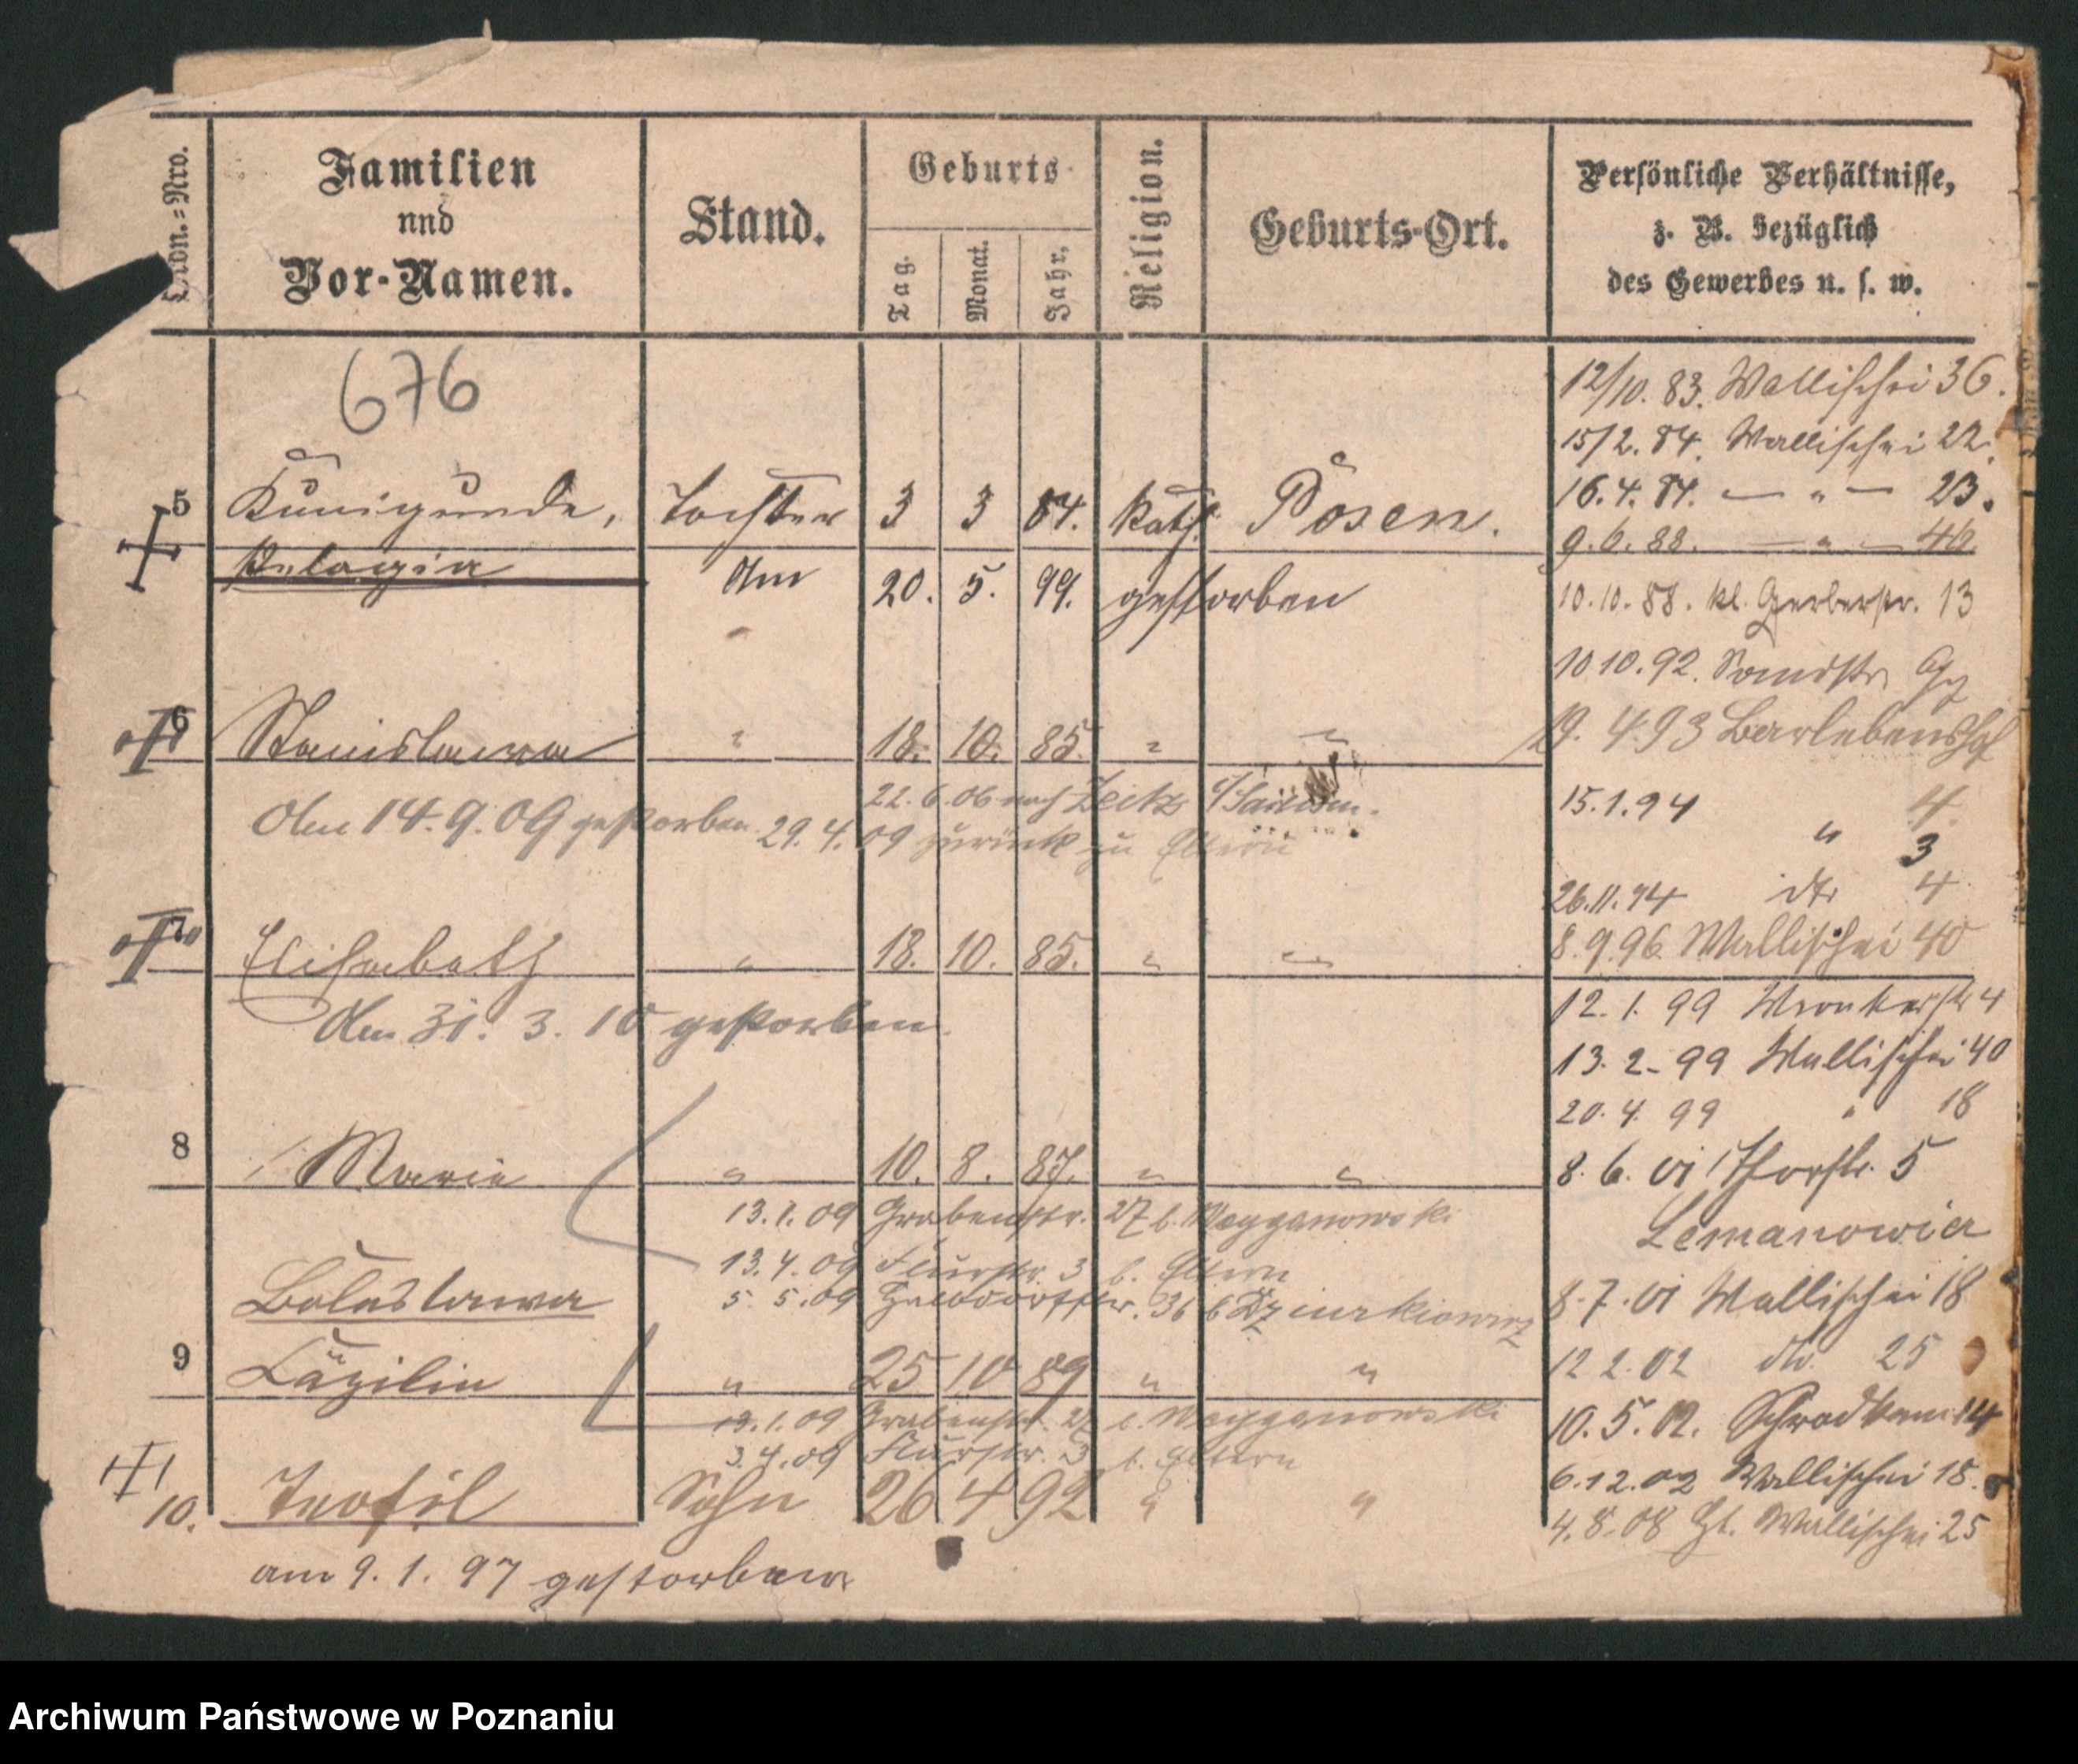 Lfdn.=Nro.
Familien
und
Vor-Namen.
Stand.
Geburts
Tag.
Monat.
Jahr,
Religion.
Geburts-Ort.
Persönliche Verhältnisse,
z. B. bezüglich
des Gewerbes u. s. w.
676
5 Kunigunde, Tochter 3 3 84. Kath. Posen.
Pelagia Am 20. 5. 99. gestorben
6 Stanislawa " 18. 10. 85. " "
22. 6. 06 nach Zeitz
Am 14. 9. 09 gestorben 29. 4. 09 zurück zu Eltern
7 Elisabeth " 18. 10. 85. " "
Am 31. 3. 10 gestorben.
8 Marie " 10. 8. 87. " "
13. 1. 09 Grabenstr. 27 b.
13. 4. 09 Flurstr. 3 b. Eltern
Boleslawa 5. 5. 09 36 b
9 Cäzilie " 25 10 89 " "
13. 1. 09 Grabenstr. 27 b.
3. 4. 09 Flurstr. 3 b. Eltern
10. Teofil Sohn 26 4 92 " "
am 9. 1. 97 gestorben
12/10. 83. Wallischei 36.
15/2. 84. Wallischei 22.
16. 4. 84. — " — 23.
9. 6. 88. — " — 46.
10. 10. 88. kl. Gerberstr. 13
10 10. 92. Sandstr
19. 4 93 Barlebenshof
15. 1. 94 4
" 3
26. 11. 94 dto 4
8. 9. 96. Wallischei 40
12. 1. 99 Wronkerstr 4
13. 2. 99 Wallischei 40
20. 4. 99 " 18
8. 6. 01 Thorstr. 5
8. 7. 01 Wallischei 18
12 2. 02 dto. 25
10. 5. 02. 14
6. 12. 02 Wallischei 18.
4. 8. 08 Wallischei 25
Archiwum Państwowe w Poznaniu